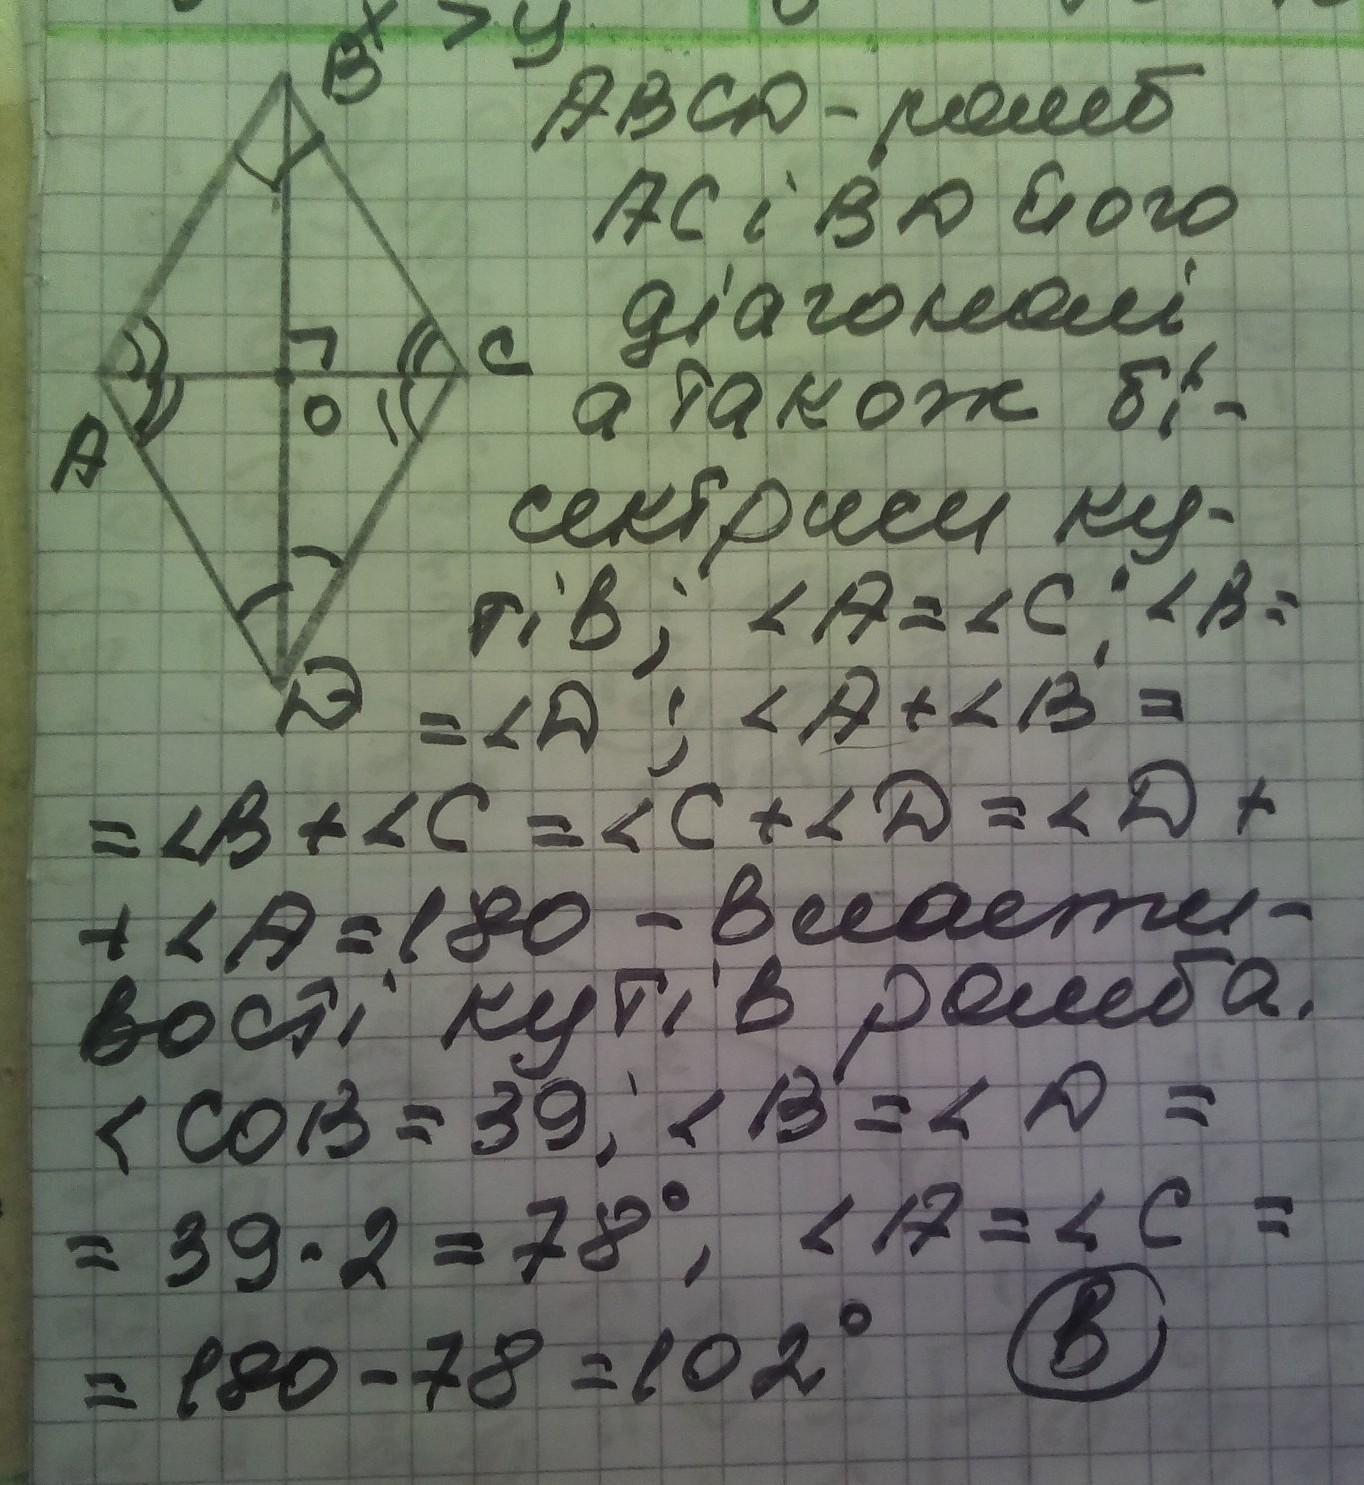 x > y
B
ABCD - ромб
AC і BD його
діагоналі
C
O
а також бі-
A
сектриси ку-
тів; <A = <C; <B =
D
= <D; <A + <B =
= <B + <C = <C + <D = <D +
+ <A = 180 - власти-
вості кутів ромба.
< COB = 39; < B = < D =
= 39 · 2 = 78°, < A = < C =
= 180 - 78 = 102° В